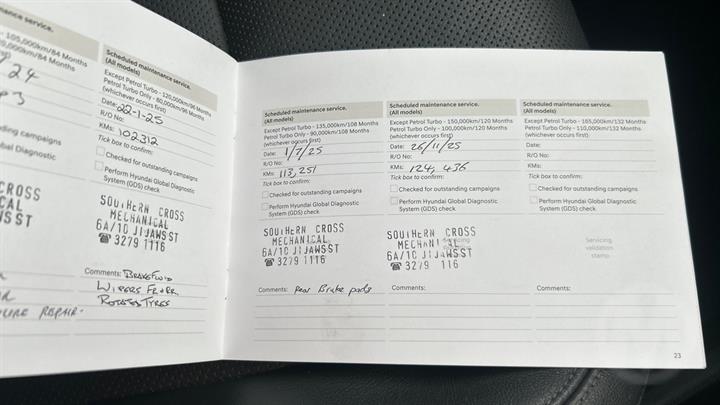 ance service.
- 105,000km/84 Months
0,000km/84 Months
irst)
9 24
campaigns
Diagnostic
CROSS
ICAL
WSST
URE REPAIR.
Scheduled maintenance service.
(All models)
Except Petrol Turbo - 120,000km/96 Months
Petrol Turbo Only - 80,000km/96 Months
(whichever occurs first)
Date: 22-1-25
R/O No:
KMs: 102312
Tick box to confirm:
Checked for outstanding campaigns
Perform Hyundai Global Diagnostic
System (GDS) check
SOUTHERN CROSS
MECHANICAL
6A/10 JIJAWS ST
☎ 3279 1116
Comments: BRAKE FLUID
WIPERS FR & RR
ROTATED TYRES
Scheduled maintenance service.
(All models)
Except Petrol Turbo - 135,000km/108 Months
Petrol Turbo Only - 90,000km/108 Months
(whichever occurs first)
Date: 1/7/25
R/O No:
KMs: 113,251
Tick box to confirm:
Checked for outstanding campaigns
Perform Hyundai Global Diagnostic
System (GDS) check
SOUTHERN CROSS
MECHANICAL
6A/10 JIJAWS ST
☎ 3279 1116
Comments: Rear Brake pads
Scheduled maintenance service.
(All models)
Except Petrol Turbo - 150,000km/120 Months
Petrol Turbo Only - 100,000km/120 Months
(whichever occurs first)
Date: 26/11/25
R/O No:
KMs: 124,436
Tick box to confirm:
Checked for outstanding campaigns
Perform Hyundai Global Diagnostic
System (GDS) check
SOUTHERN CROSS
MECHANICAL
6A/10 JIJAWS ST
☎ 3279 116
Comments:
Scheduled maintenance service.
(All models)
Except Petrol Turbo - 165,000km/132 Months
Petrol Turbo Only - 110,000km/132 Months
(whichever occurs first)
Date:
R/O No:
KMs:
Tick box to confirm:
Checked for outstanding campaigns
Perform Hyundai Global Diagnostic
System (GDS) check
Servicing
validation
stamp
Comments:
23